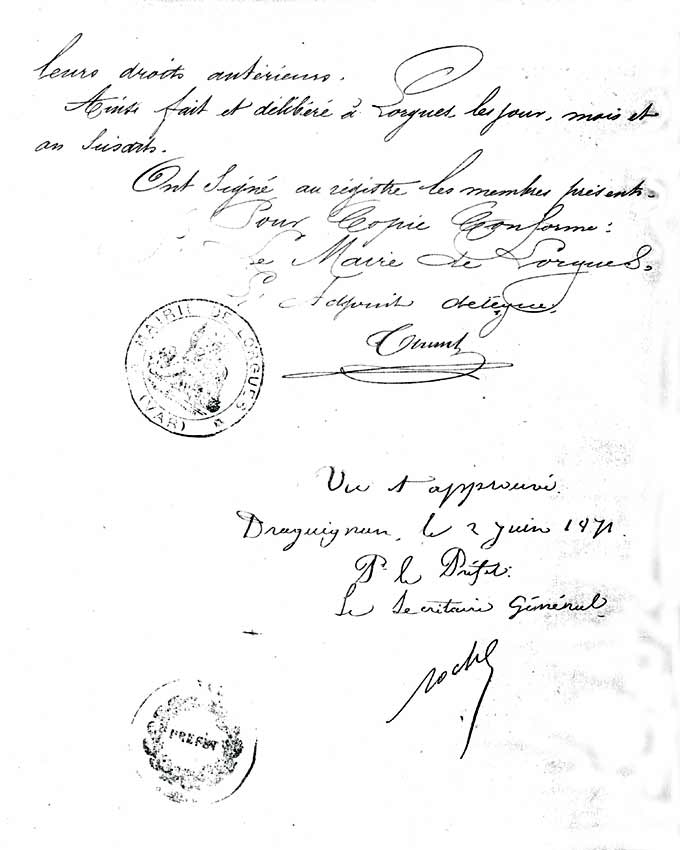 leurs droits antérieurs.
Ainsi fait et délibéré à Lorgues les jour, mois et
an susdits.
Ont signé au régistre les membres présents.
Pour Copie Conforme:
Le Maire de Lorgues.
L'Adjoint délégué.
MAIRIE DE LORGUES
(VAR)
Vu et approuvé.
Draguignan, le 2 Juin 1871.
Pr le Préfet:
Le Secrétaire Général
PREFET